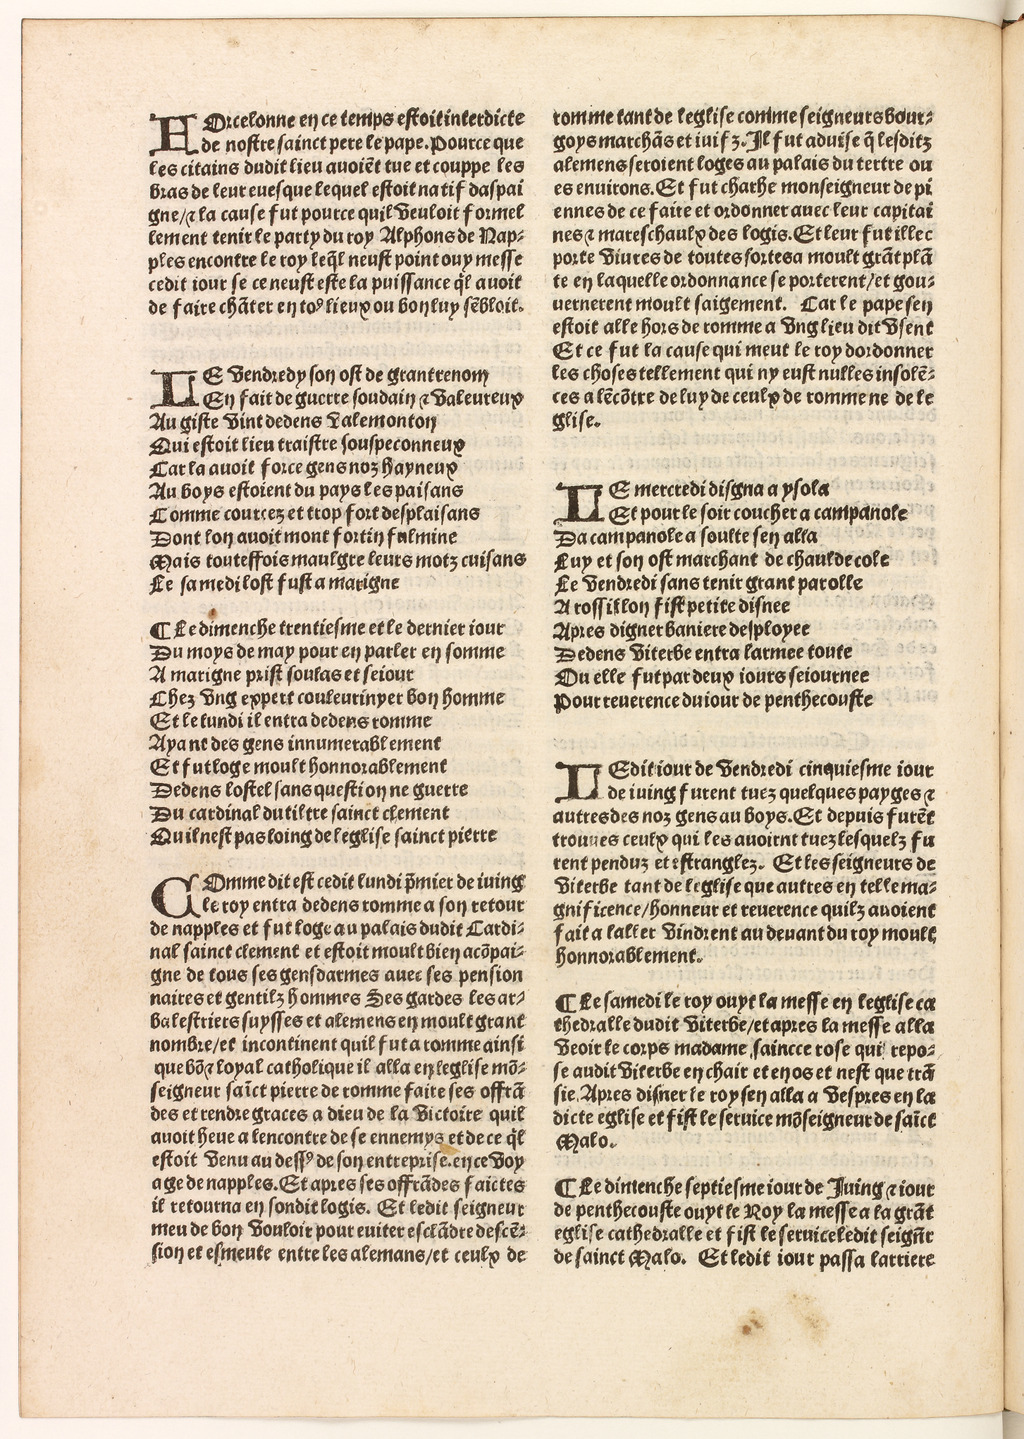 HOrcelonne en ce temps estoit interdicte
de nostre sainct pere le pape. Pource que
les citains dudit lieu avoiēt tue et couppe les
bras de leur evesque lequel estoit natif daspai
gne/⁊ la cause fut pource quil vouloit formel
lement tenir le party du roy Alphons de Nap-
ples encontre le roy leq̄l neust point ouy messe
cedit iour se ce neust este la puissance ql̄ avoit
de faire chāter en toꝰ lieux ou bon luy sēbloit.
LE vendredy son ost de grant renom
En fait de guerre soudain ⁊ valeureux
Au giste vint dedens Valemonton
Qui estoit lieu traistre souspeconneux
Car la avoit force gens noz hayneux
Au boys estoient du pays les paisans
Comme courcez et trop fort desplaisans
Dont lon avoit mont fortin fulmine
Mais touteffois maulgre leurs motz cuisans
Le samedi lost fust a marigne
¶ Le dimenche trentiesme et le dernier iour
Du moys de may pour en parler en somme
A marigne prist soulas et seiour
Chez ung expert couleurinyer bon homme
Et le lundi il entra dedens romme
Ayant des gens innumerablement
Et fut loge moult honnorablement
Dedens lostel sans question ne guerre
Du cardinal du tiltre sainct clement
Qui nest pas loing de leglise sainct pierre
COmme dit est cedit lundi p̄mier de iuing
le roy entra dedens romme a son retour
de napples et fut loge au palais dudit Cardi-
nal sainct clement et estoit moult bien acōpai-
gne de tous ses gensdarmes avec ses pension
naires et gentilz hommes Ses gardes les ar-
balestriers suysses et alemens en moult grant
nombre/et incontinent quil fut a romme ainsi
que bō ⁊ loyal catholique il alla en leglise mō-
seigneur saīct pierre de romme faire ses offrā
des et rendre graces a dieu de la victoire quil
avoit heue a lencontre de se ennemys et de ce ql̄
estoit venu au dessꝰ de son entreprise. en ce voy
age de napples. Et apres ses offrādes faictes
il retourna en sondit logis. Et ledit seigneur
meu de bon vouloir pour eviter esclādre descē-
sion et esmeute entre les alemans/et ceulx de
romme tant de leglise comme seigneurs bour-
goys marchās et iuifz. Il fut advise q̄ lesditz
alemens seroient loges au palais du tertre ou
es environs. Et fut charhe monseigneur de pi
ennes de ce faire et ordonner avec leur capitai
nes ⁊ mareschaulx des logis. Et leur fut illec
porte vivres de toutes sortes a moult grāt plā
te en laquelle ordonnance se porterent/et gou-
vernerent moult saigement. Car le pape sen
estoit alle hors de romme a ung lieu dit Vsent
Et ce fut la cause qui meut le roy dordonner
les choses tellement qui ny eust nulles insolē-
ces a lēcōtre de luy de ceulx de romme ne de le
glise.
LE mercredi disgna a ysola
Et pour le soir coucher a campanole
Da campanole a soulte sen alla
Luy et son ost marchant de chaulde cole
Le vendredi sans tenir grant parolle
A rossillon fist petite disnee
Apres digner baniere desployee
Dedens Viterbe entra larmee toute
Ou elle fut par deux iours seiournee
Pour reverence du iour de penthecouste
LEdit iour de vendredi cinquiesme iour
de iuing furent tuez quelques payges ⁊
autres des noz gens au boys. Et depuis furēt
trouves ceulx qui les avoirnt tuez lesquelz fu
rent penduz et estranglez. Et les seigneurs de
Viterbe tant de leglise que autres en telle ma-
gnificence/honneur et reverence quilz avoient
fait a laller vindrent au devant du roy moult
honnorablement.
¶ Le samedi le roy ouyt la messe en leglise ca
thedralle dudit Viterbe/et apres la messe alla
veoir le corps madame saincce rose qui repo-
se audit Viterbe en chair et en os et nest que trā
sie. Apres disner le roy sen alla a vespres en la
dicte eglise et fist le service mōseigneur de saīct
Malo.
¶ Le dimenche septiesme iour de Juing ⁊ iour
de penthecouste ouyt le Roy la messe a la grāt
eglise cathedralle et fist le service ledit seign̄r
de sainct Malo. Et ledit iour passa larriere